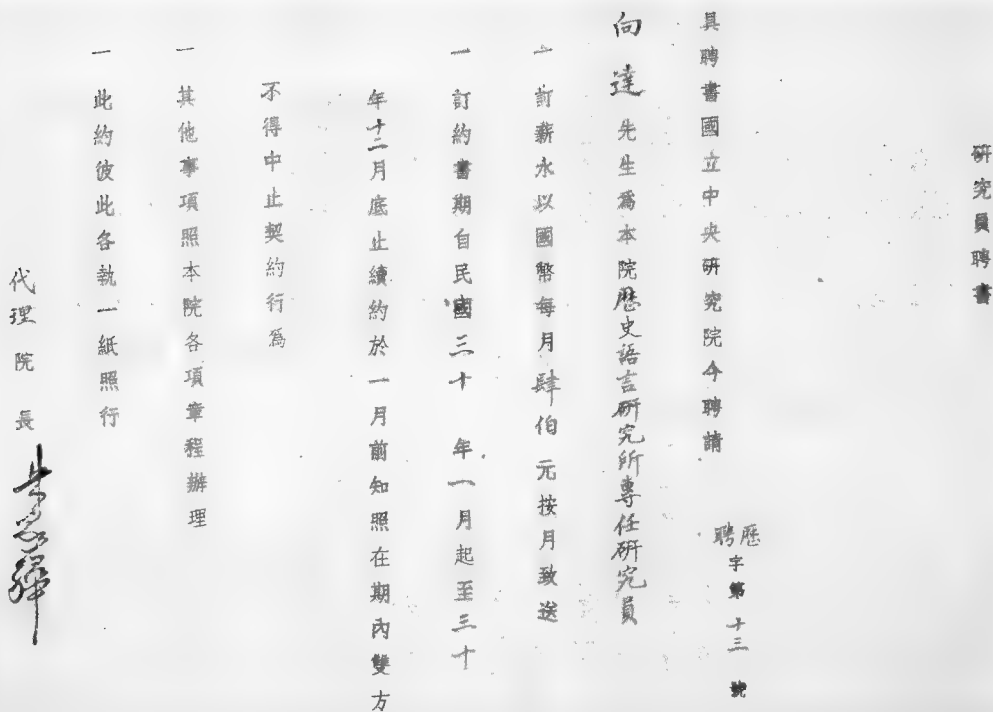 研究員聘書
歷聘字第十三號
具聘書國立中央研究院今聘請
向達先生爲本院歷史語言研究所專任研究員
一訂薪水以國幣每月肆伯元按月致送
一訂約書期自民國三十 年一月起至三十
年十二月底止續約於一月前知照在期內雙方
不得中止契約行爲
一其他事項照本院各項章程辦理
一此約彼此各執一紙照行
代理院長朱家驊